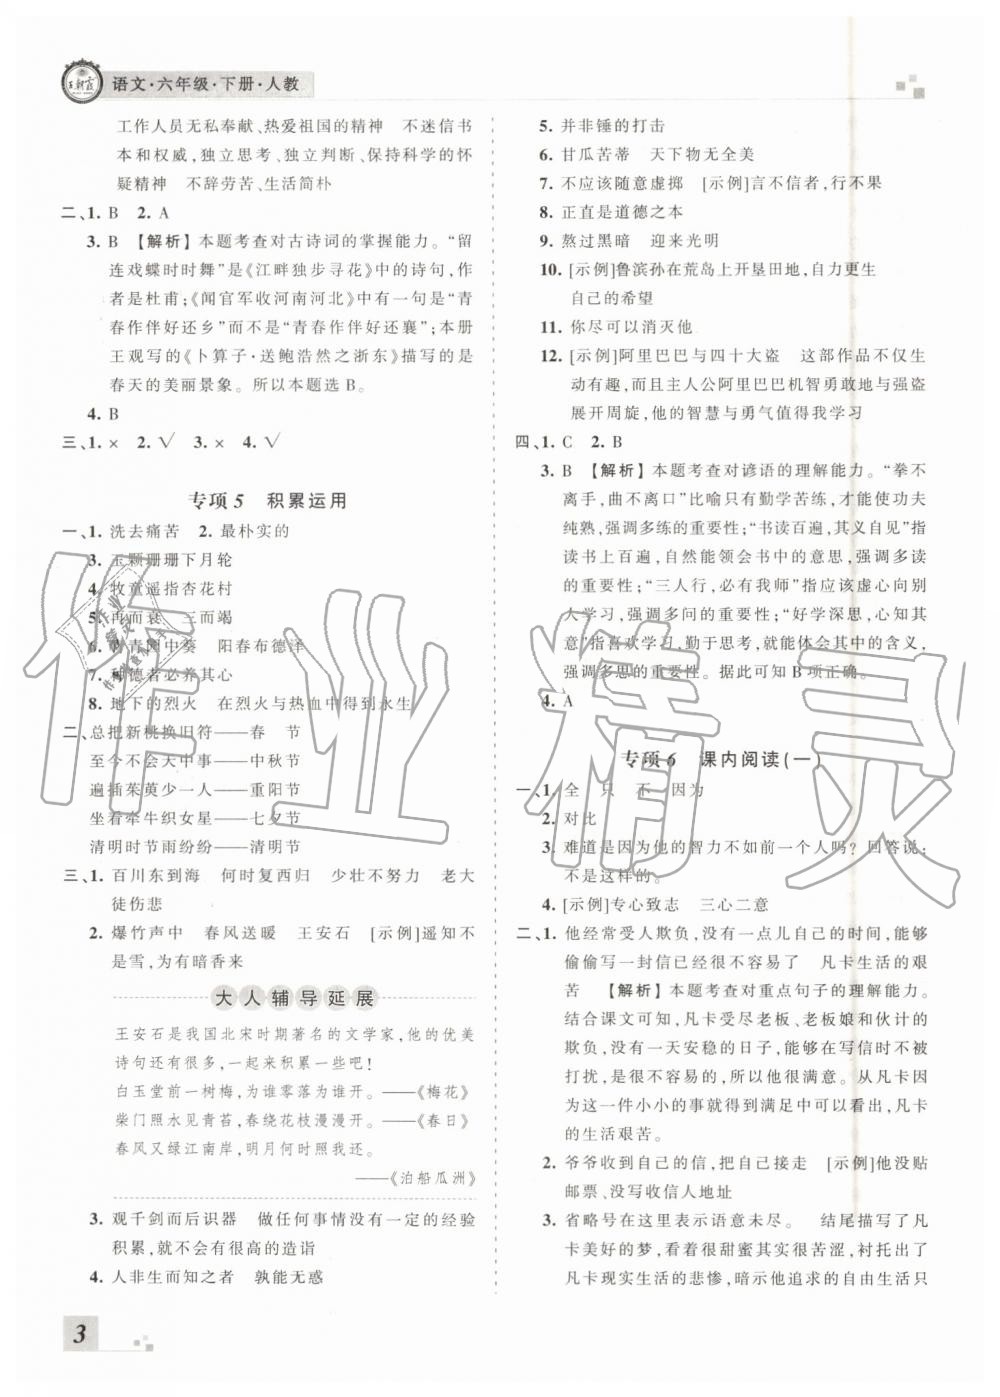 王朝霞
语文·六年级·下册·人教
工作人员无私奉献、热爱祖国的精神 不迷信书
本和权威,独立思考、独立判断、保持科学的怀
疑精神 不辞劳苦、生活简朴
二、1. B 2. A
3. B 【解析】本题考查对古诗词的掌握能力。“留
连戏蝶时时舞”是《江畔独步寻花》中的诗句,作
者是杜甫;《闻官军收河南河北》中有一句是“青
春作伴好还乡”而不是“青春作伴好还襄”;本册
王观写的《卜算子·送鲍浩然之浙东》描写的是
春天的美丽景象。所以本题选B。
4. B
三、1. × 2. √ 3. × 4. √
专项5 积累运用
一、1. 洗去痛苦 2. 最朴实的
3. 玉颗珊珊下月轮
4. 牧童遥指杏花村
5. 再而衰 三而竭
6. 青青园中葵 阳春布德泽
7. 种德者必养其心
8. 地下的烈火 在烈火与热血中得到永生
二、总把新桃换旧符——春 节
至今不会天中事——中秋节
遍插茱萸少一人——重阳节
坐着牵牛织女星——七夕节
清明时节雨纷纷——清明节
三、1. 百川东到海 何时复西归 少壮不努力 老大
徒伤悲
2. 爆竹声中 春风送暖 王安石 [示例]遥知不
是雪,为有暗香来
大人辅导延展
王安石是我国北宋时期著名的文学家,他的优美
诗句还有很多,一起来积累一些吧!
白玉堂前一树梅,为谁零落为谁开。——《梅花》
柴门照水见青苔,春绕花枝漫漫开。——《春日》
春风又绿江南岸,明月何时照我还。
——《泊船瓜洲》
3. 观千剑而后识器 做任何事情没有一定的经验
积累,就不会有很高的造诣
4. 人非生而知之者 孰能无惑
5. 并非锤的打击
6. 甘瓜苦蒂 天下物无全美
7. 不应该随意虚掷 [示例]言不信者,行不果
8. 正直是道德之本
9. 熬过黑暗 迎来光明
10. [示例]鲁滨孙在荒岛上开垦田地,自力更生
自己的希望
11. 你尽可以消灭他
12. [示例]阿里巴巴与四十大盗 这部作品不仅生
动有趣,而且主人公阿里巴巴机智勇敢地与强盗
展开周旋,他的智慧与勇气值得我学习
四、1. C 2. B
3. B 【解析】本题考查对谚语的理解能力。“拳不
离手,曲不离口”比喻只有勤学苦练,才能使功夫
纯熟,强调多练的重要性;“书读百遍,其义自见”指
读书上百遍,自然能领会书中的意思,强调多读
的重要性;“三人行,必有我师”指应该虚心向别
人学习,强调多问的重要性;“好学深思,心知其
意”指喜欢学习,勤于思考,就能体会其中的含义,
强调多思的重要性。据此可知B项正确。
4. A
专项6 课内阅读(一)
一、1. 全 只 不 因为
2. 对比
3. 难道是因为他的智力不如前一个人吗?回答说:
不是这样的。
4. [示例]专心致志 三心二意
二、1. 他经常受人欺负,没有一点儿自己的时间,能够
偷偷写一封信已经很不容易了 凡卡生活的艰
苦 【解析】本题考查对重点句子的理解能力。
结合课文可知,凡卡受尽老板、老板娘和伙计的
欺负,没有一天安稳的日子,能够在写信时没被
打扰,是很幸运的,所以他很满意。从凡卡因
为这一件小小的事就得到满足中可以看出,凡卡
的生活艰苦。
2. 爷爷收到自己的信,把自己接走 [示例]他没贴
邮票、没写收信人地址
3. 省略号在这里表示语意未尽。 结尾描写了凡
卡美好的梦,很甜蜜其实很苦涩,衬托出了
凡卡现实生活的悲惨,暗示他追求的自由生活只
3
作业精灵